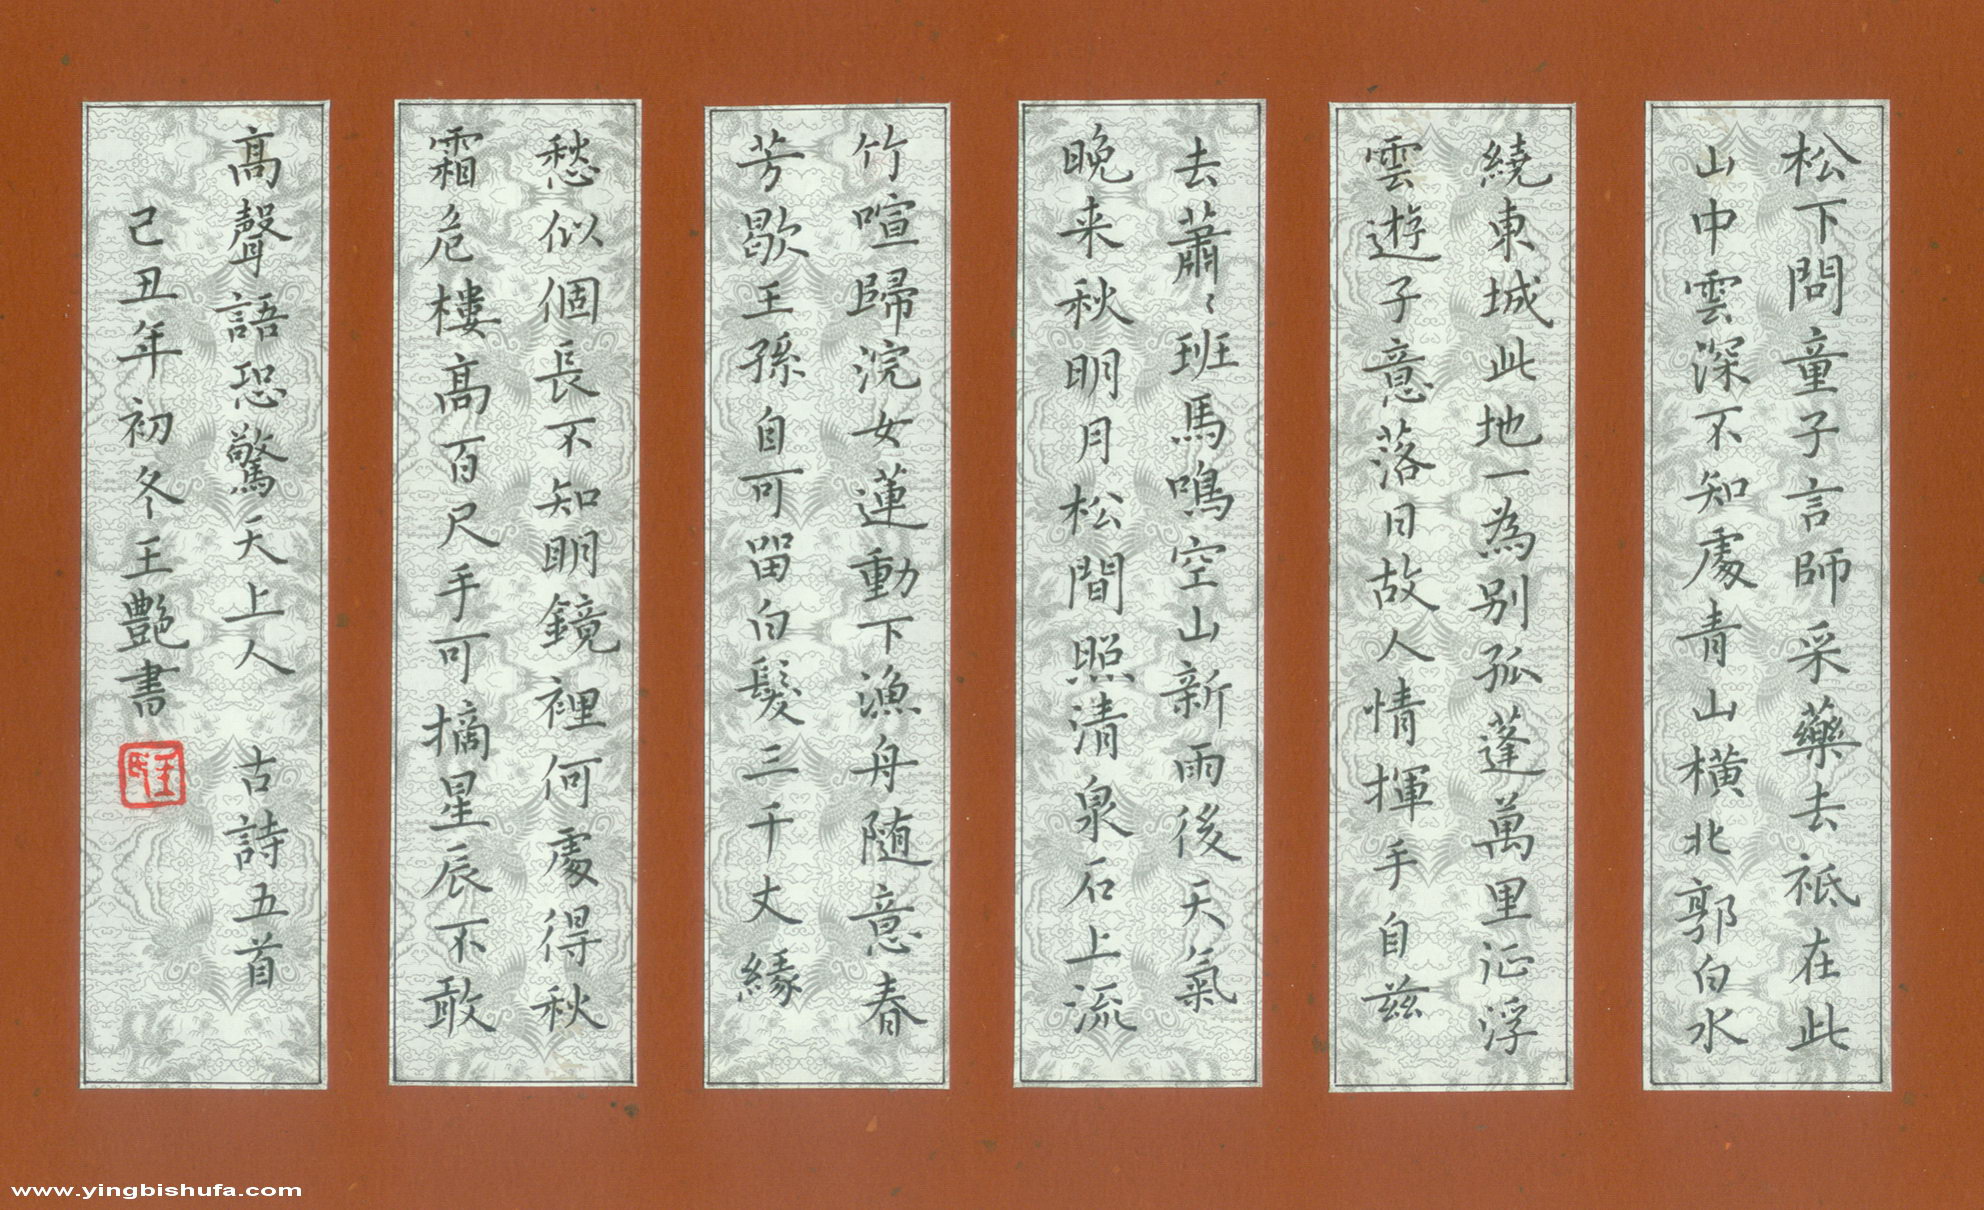 松下問童子言師采藥去祗在此
山中雲深不知處青山橫北郭白水
繞東城此地一為別孤蓬萬里征浮
雲遊子意落日故人情揮手自兹
去蕭〻班馬鳴空山新雨後天氣
晚来秋明月松間照清泉石上流
竹喧歸浣女蓮動下漁舟随意春
芳歇王孫自可留白髮三千丈緣
愁似個長不知明鏡裡何處得秋
霜危樓高百尺手可摘星辰不敢
高聲語恐驚天上人 古詩五首
己丑年初冬王艷書
www.yingbishufa.com